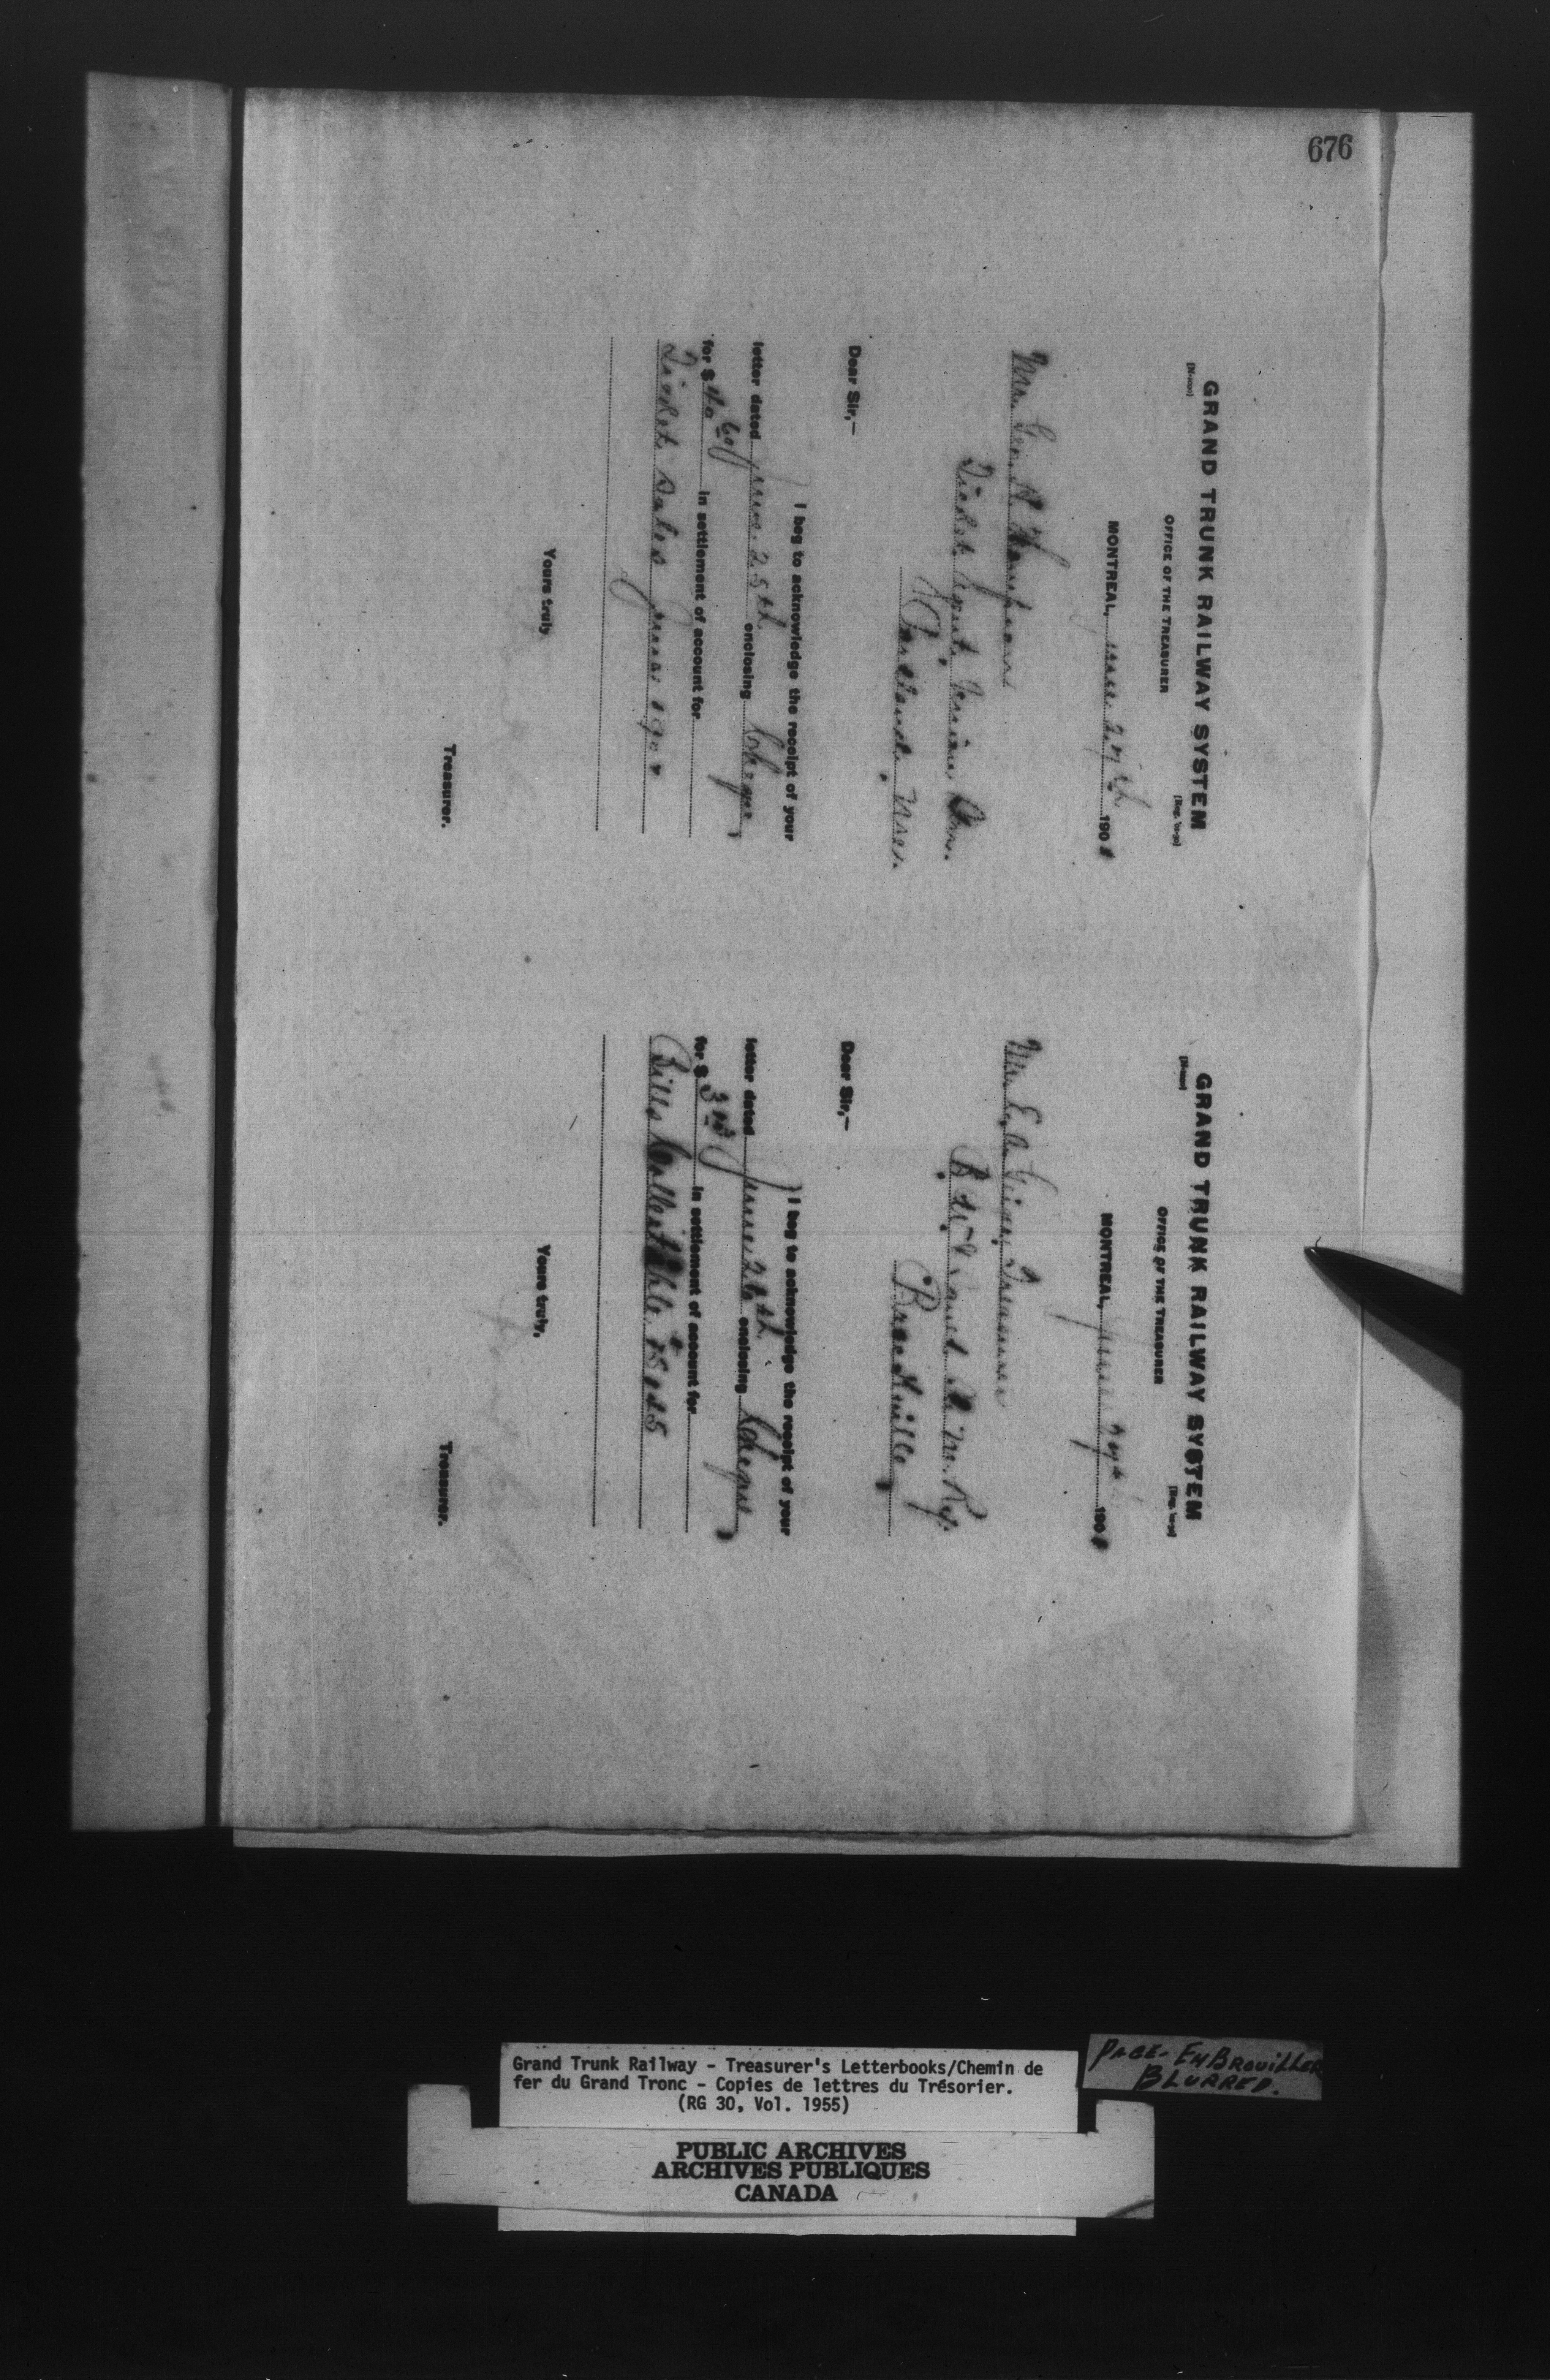 676
GRAND TRUNK RAILWAY SYSTEM
OFFICE OF THE TREASURER
MONTREAL, June 27th 190
Mr. Geo. H. Thompson
Ticket Agent, Union Stn.
Portland, Me.
Dear Sir,—
I beg to acknowledge the receipt of your
letter dated June 25th enclosing Cheque
for $ 40 60 in settlement of account for
Ticket Sales June 190
Yours truly
Treasurer.
GRAND TRUNK RAILWAY SYSTEM
OFFICE OF THE TREASURER
MONTREAL, June 190
Mr. E. A. Geiger, Treasurer
B. W. & Ry.
Brockville
Dear Sir,—
I beg to acknowledge the receipt of your
letter dated June 26th enclosing Cheque
for $ 3 in settlement of account for
Bills Collectible
Yours truly,
Treasurer.
PAGE - EMBROUILLER
BLURRED.
Grand Trunk Railway - Treasurer's Letterbooks/Chemin de
fer du Grand Tronc - Copies de lettres du Trésorier.
(RG 30, Vol. 1955)
PUBLIC ARCHIVES
ARCHIVES PUBLIQUES
CANADA